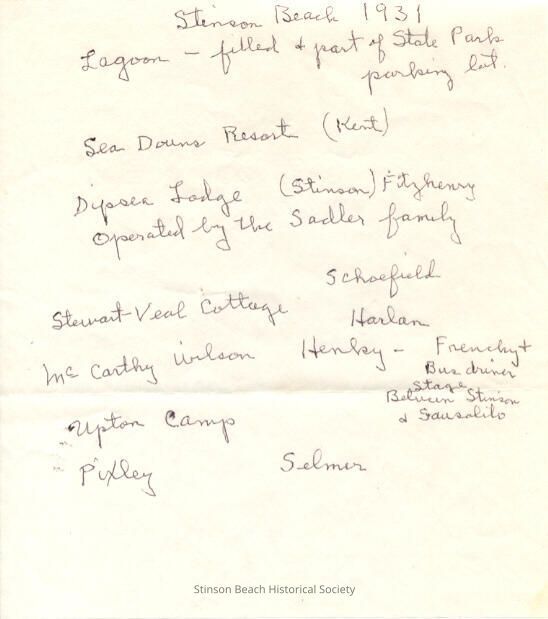 Stinson Beach 1931
Lagoon - filled & part of State Park
parking lot.
Sea Downs Resort (Kent)
Dipsea Lodge (Stinson) Fitzhenry
Operated by the Sadler family
Schoefield
Stewart-Veal Cottage Harlan
McCarthy Wilson Henley - Frenchy +
Bus driver
Stage
Between Stinson
& Sausalito
Upton Camp
Pixley Selmer
Stinson Beach Historical Society